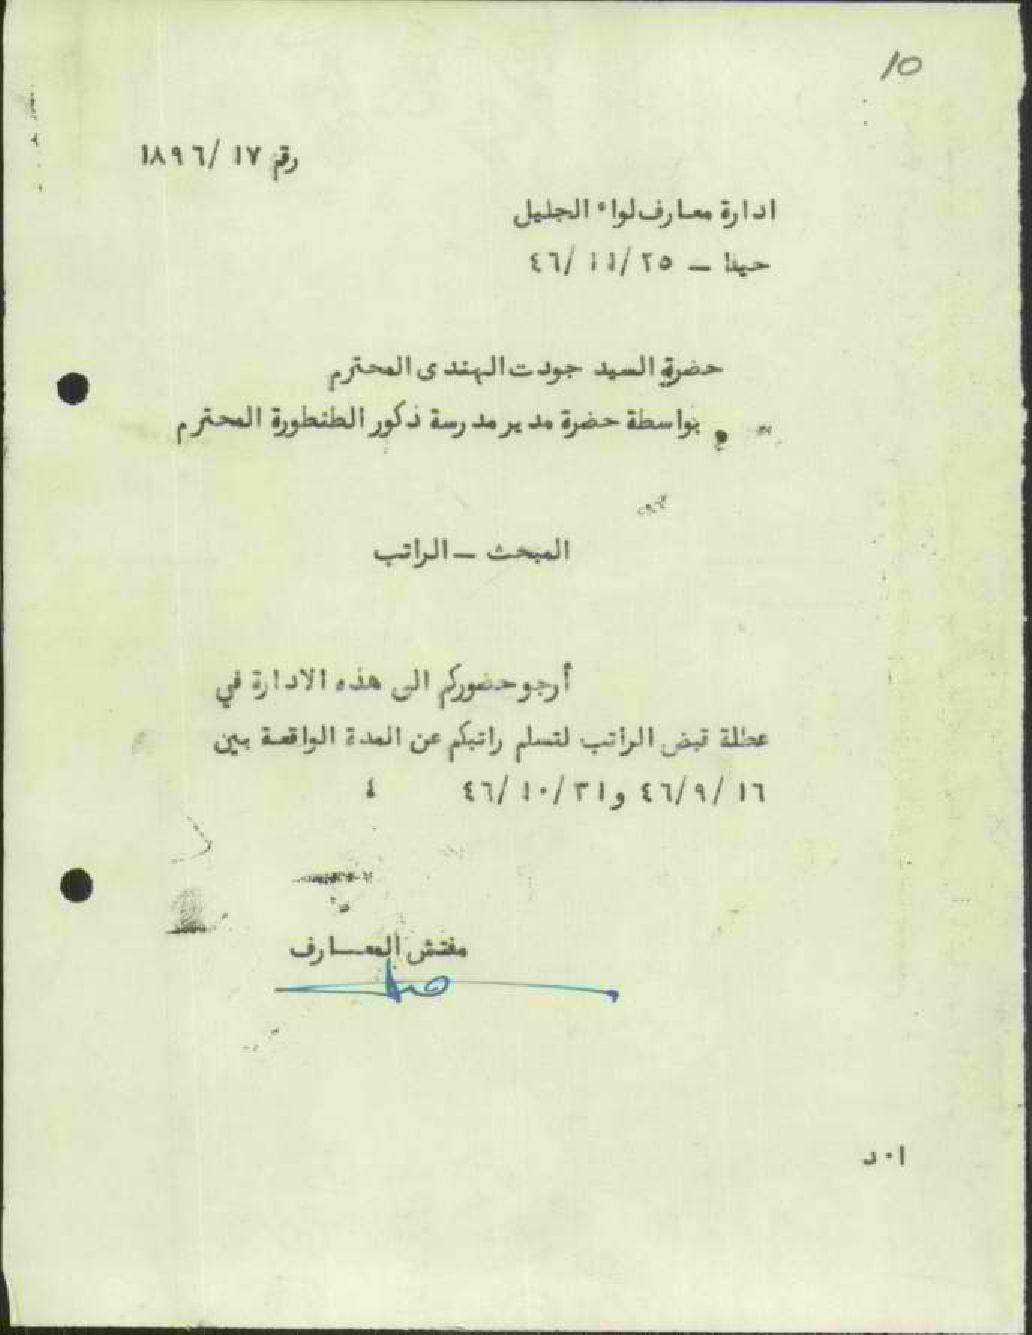 10
رقم ١٧ /١٨٩٦
ادارة معارف لواء الجليل
حيفا – ٢٥ /١١ /٤٦
حضرة السيد جودت الهندى المحترم
بواسطة حضرة مدير مدرسة ذكور الطنطورة المحترم
المبحث – الراتب
أرجو حضوركم الى هذه الادارة في
عطلة قبض الراتب لتسلم راتبكم عن المدة الواقعة بين
١٦ /٩ /٤٦ و٣١ /١٠ /٤٦
مفتش المعــارف
ا٠د